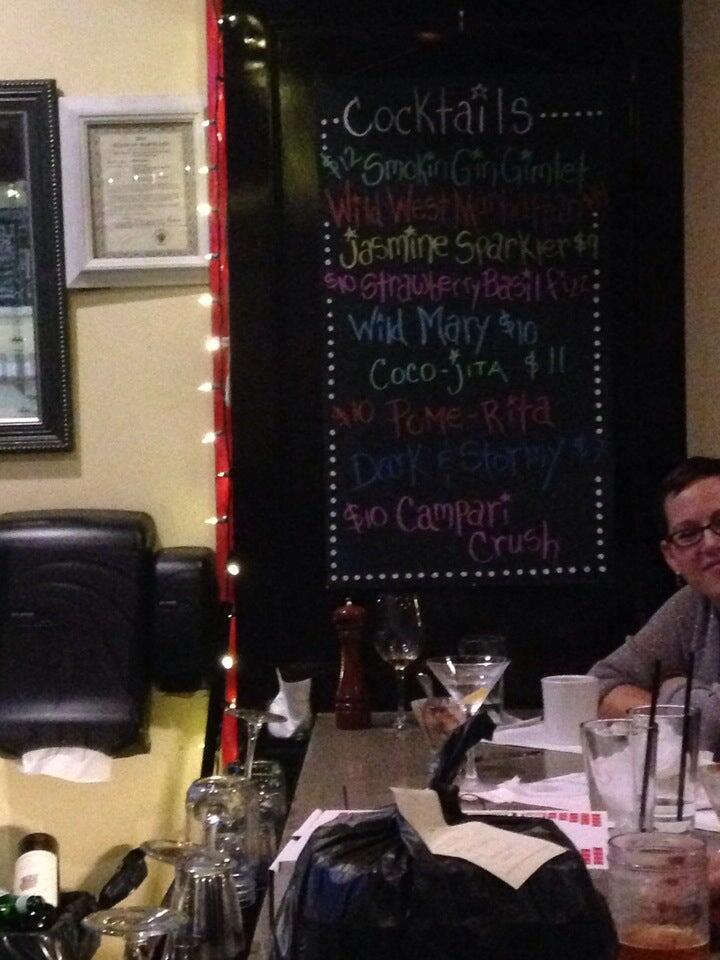 Cocktails
$12 Smokin Gin Gimlet
Wild West
Jasmine Sparkler $9
$10 Strawberry Basil Fizz
Wild Mary $10
Coco-jita $11
$10 Pome-Rita
Dark & Stormy
$10 Campari
Crush